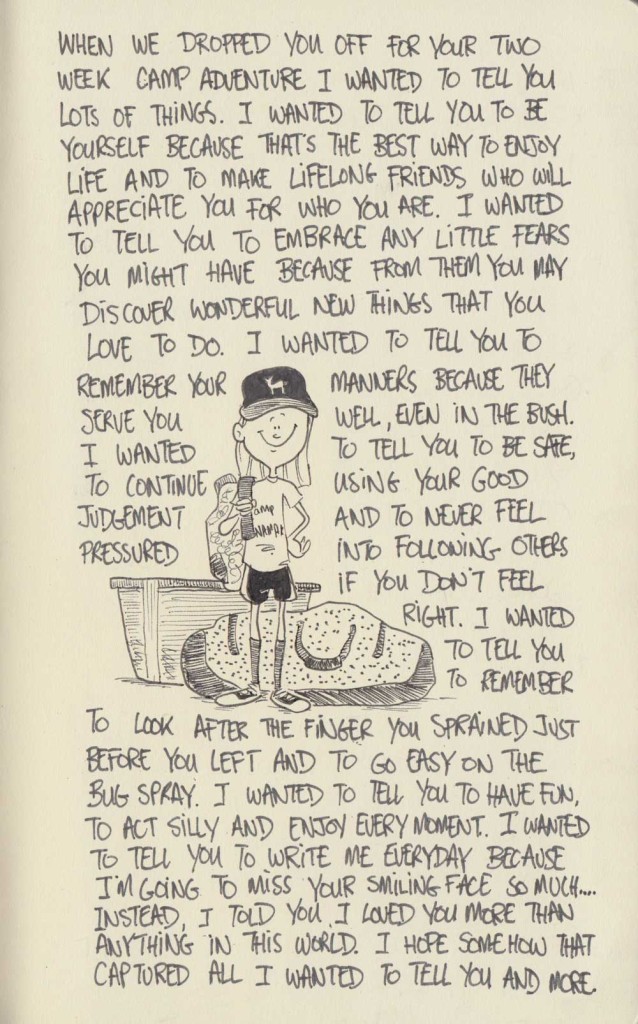 WHEN WE DROPPED YOU OFF FOR YOUR TWO
WEEK CAMP ADVENTURE I WANTED TO TELL YOU
LOTS OF THINGS. I WANTED TO TELL YOU TO BE
YOURSELF BECAUSE THAT'S THE BEST WAY TO ENJOY
LIFE AND TO MAKE LIFELONG FRIENDS WHO WILL
APPRECIATE YOU FOR WHO YOU ARE. I WANTED
TO TELL YOU TO EMBRACE ANY LITTLE FEARS
YOU MIGHT HAVE BECAUSE FROM THEM YOU MAY
DISCOVER WONDERFUL NEW THINGS THAT YOU
LOVE TO DO. I WANTED TO TELL YOU TO
REMEMBER YOUR MANNERS BECAUSE THEY
SERVE YOU WELL, EVEN IN THE BUSH.
I WANTED TO TELL YOU TO BE SAFE,
TO CONTINUE USING YOUR GOOD
JUDGEMENT AND TO NEVER FEEL
PRESSURED INTO FOLLOWING OTHERS
IF YOU DON'T FEEL
RIGHT. I WANTED
TO TELL YOU
TO REMEMBER
TO LOOK AFTER THE FINGER YOU SPRAINED JUST
BEFORE YOU LEFT AND TO GO EASY ON THE
BUG SPRAY. I WANTED TO TELL YOU TO HAVE FUN,
TO ACT SILLY AND ENJOY EVERY MOMENT. I WANTED
TO TELL YOU TO WRITE ME EVERYDAY BECAUSE
I'M GOING TO MISS YOUR SMILING FACE SO MUCH....
INSTEAD, I TOLD YOU I LOVED YOU MORE THAN
ANYTHING IN THIS WORLD. I HOPE SOMEHOW THAT
CAPTURED ALL I WANTED TO TELL YOU AND MORE.